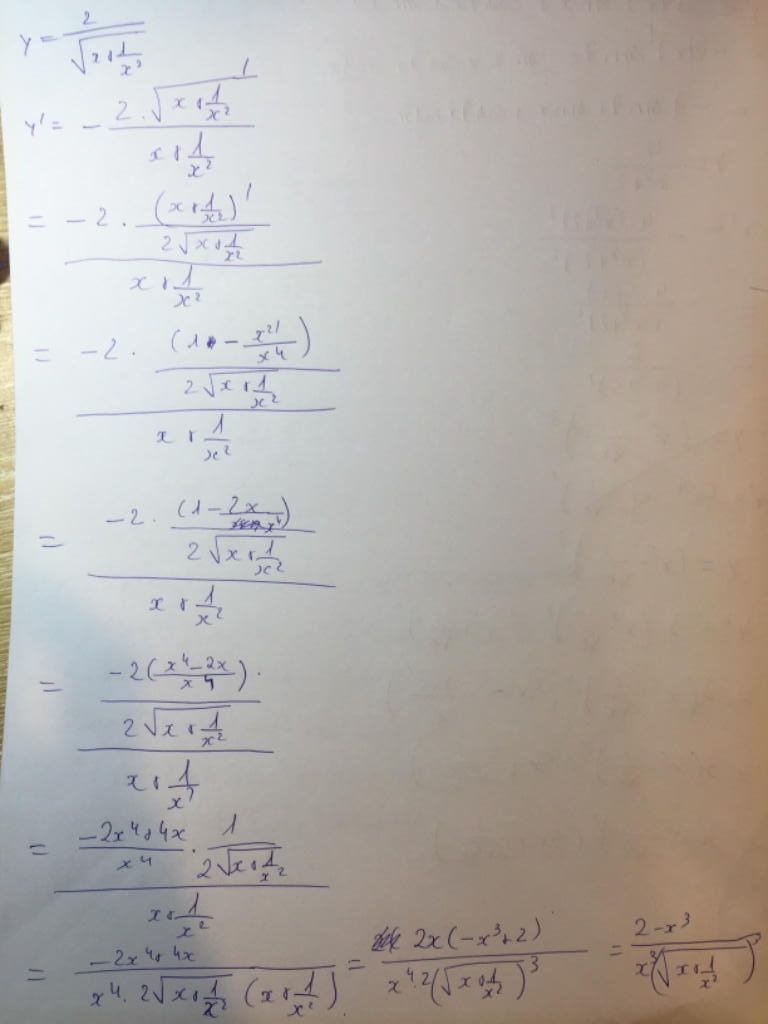 y = \frac{2}{\sqrt{x+\frac{1}{x^2}}}
y' = - \frac{2 \cdot \sqrt{x+\frac{1}{x^2}}'}{x+\frac{1}{x^2}}
= \frac{-2 \cdot \frac{(x+\frac{1}{x^2})'}{2\sqrt{x+\frac{1}{x^2}}}}{x+\frac{1}{x^2}}
= \frac{-2 \cdot \frac{(1-\frac{x^{2'}}{x^4})}{2\sqrt{x+\frac{1}{x^2}}}}{x+\frac{1}{x^2}}
= \frac{-2 \cdot \frac{(1-\frac{2x}{x^4})}{2\sqrt{x+\frac{1}{x^2}}}}{x+\frac{1}{x^2}}
= \frac{\frac{-2(\frac{x^4-2x}{x^4}) \cdot}{2\sqrt{x+\frac{1}{x^2}}}}{x+\frac{1}{x^2}}
= \frac{\frac{-2x^4+4x}{x^4} \cdot \frac{1}{2\sqrt{x+\frac{1}{x^2}}}}{x+\frac{1}{x^2}}
= \frac{-2x^4+4x}{x^4 \cdot 2\sqrt{x+\frac{1}{x^2}} (x+\frac{1}{x^2})} = \frac{2x(-x^3+2)}{x^4 \cdot 2(\sqrt{x+\frac{1}{x^2}})^3} = \frac{2-x^3}{x^3(\sqrt{x+\frac{1}{x^2}})^3}